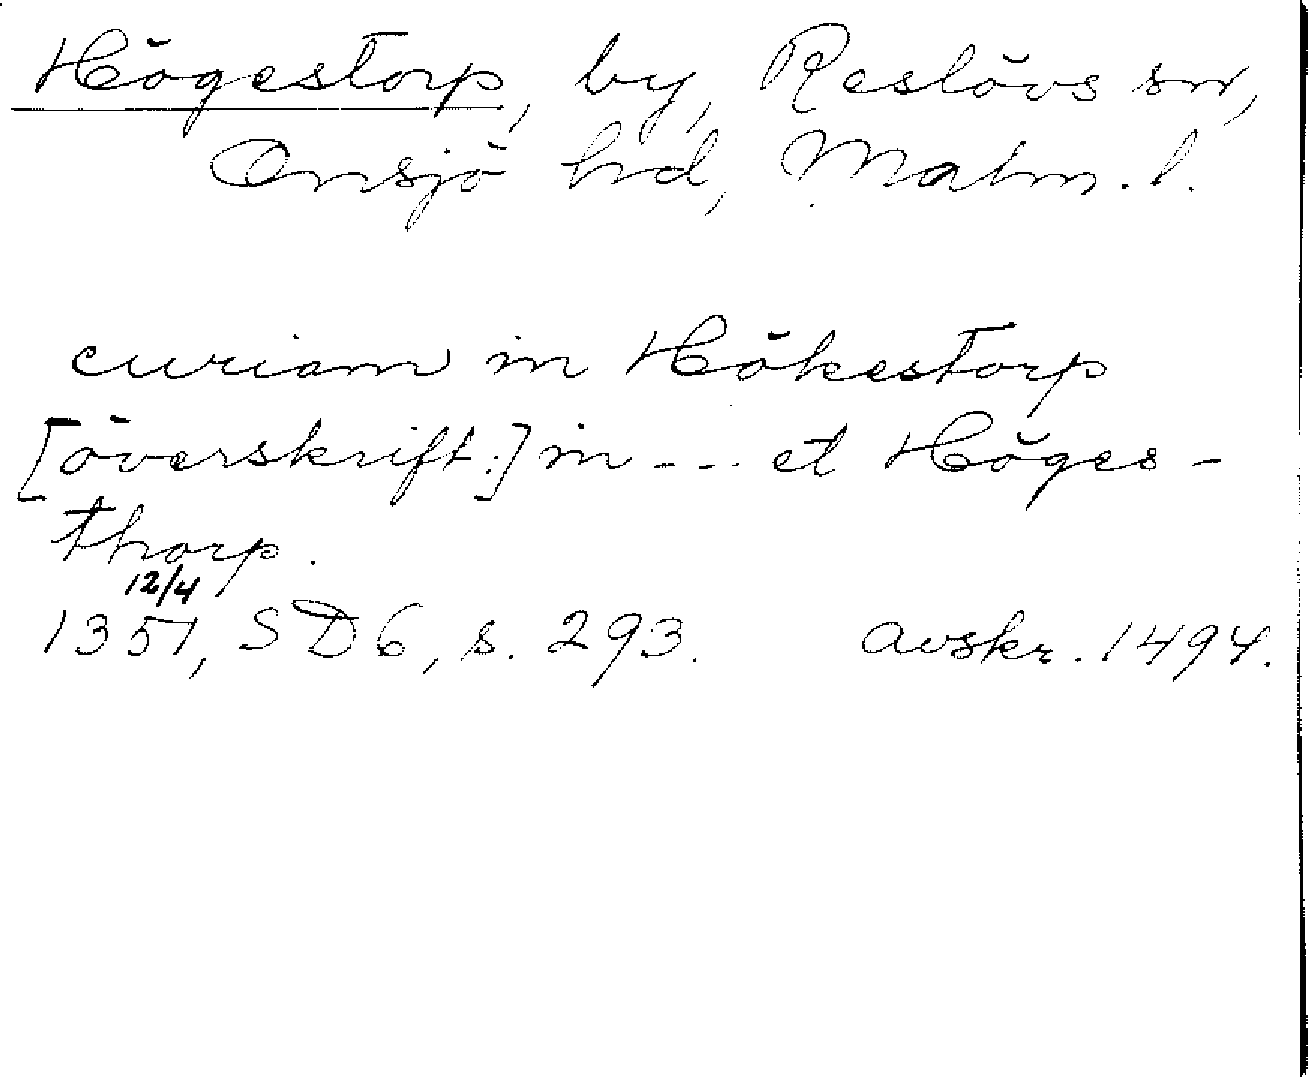 Högestorp, by, Reslövs sn,
Onsjö hd, Malm. l.
curiam in Hökestorp
[överskrift:] in --- et Höges-
thorp.
12/4
1351, SD 6, s. 293. avskr. 1494.